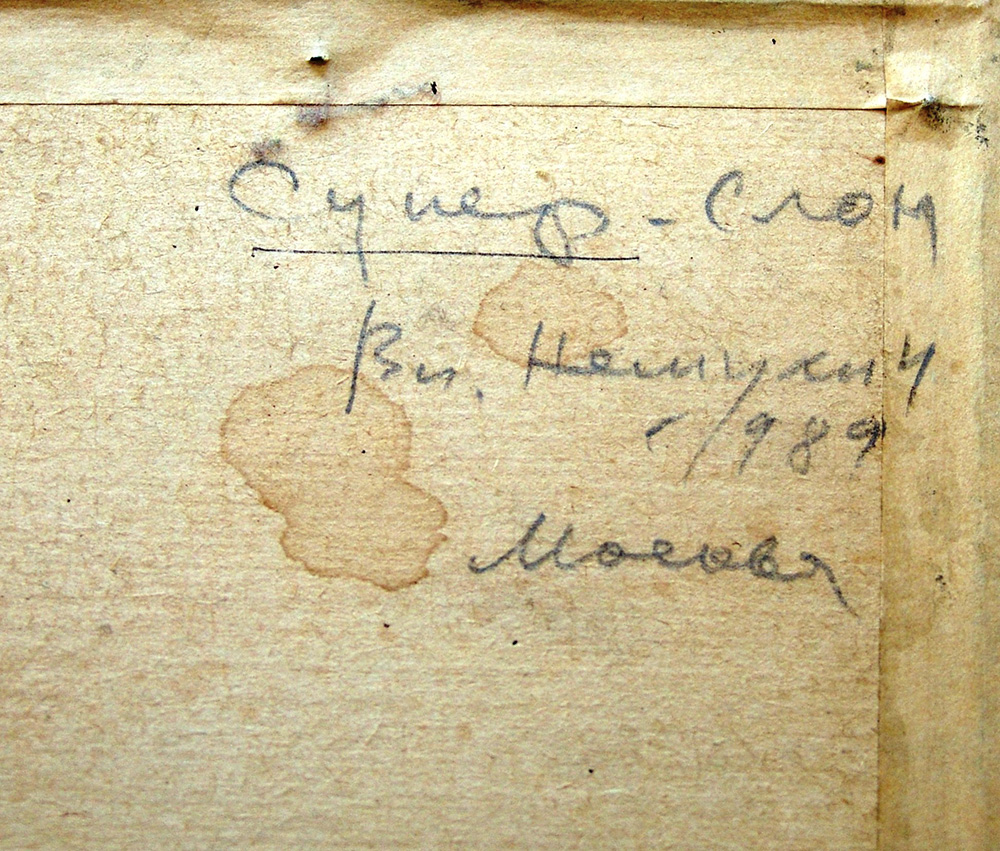 Супер - Слон
Вл. Немухин
1989
Москва